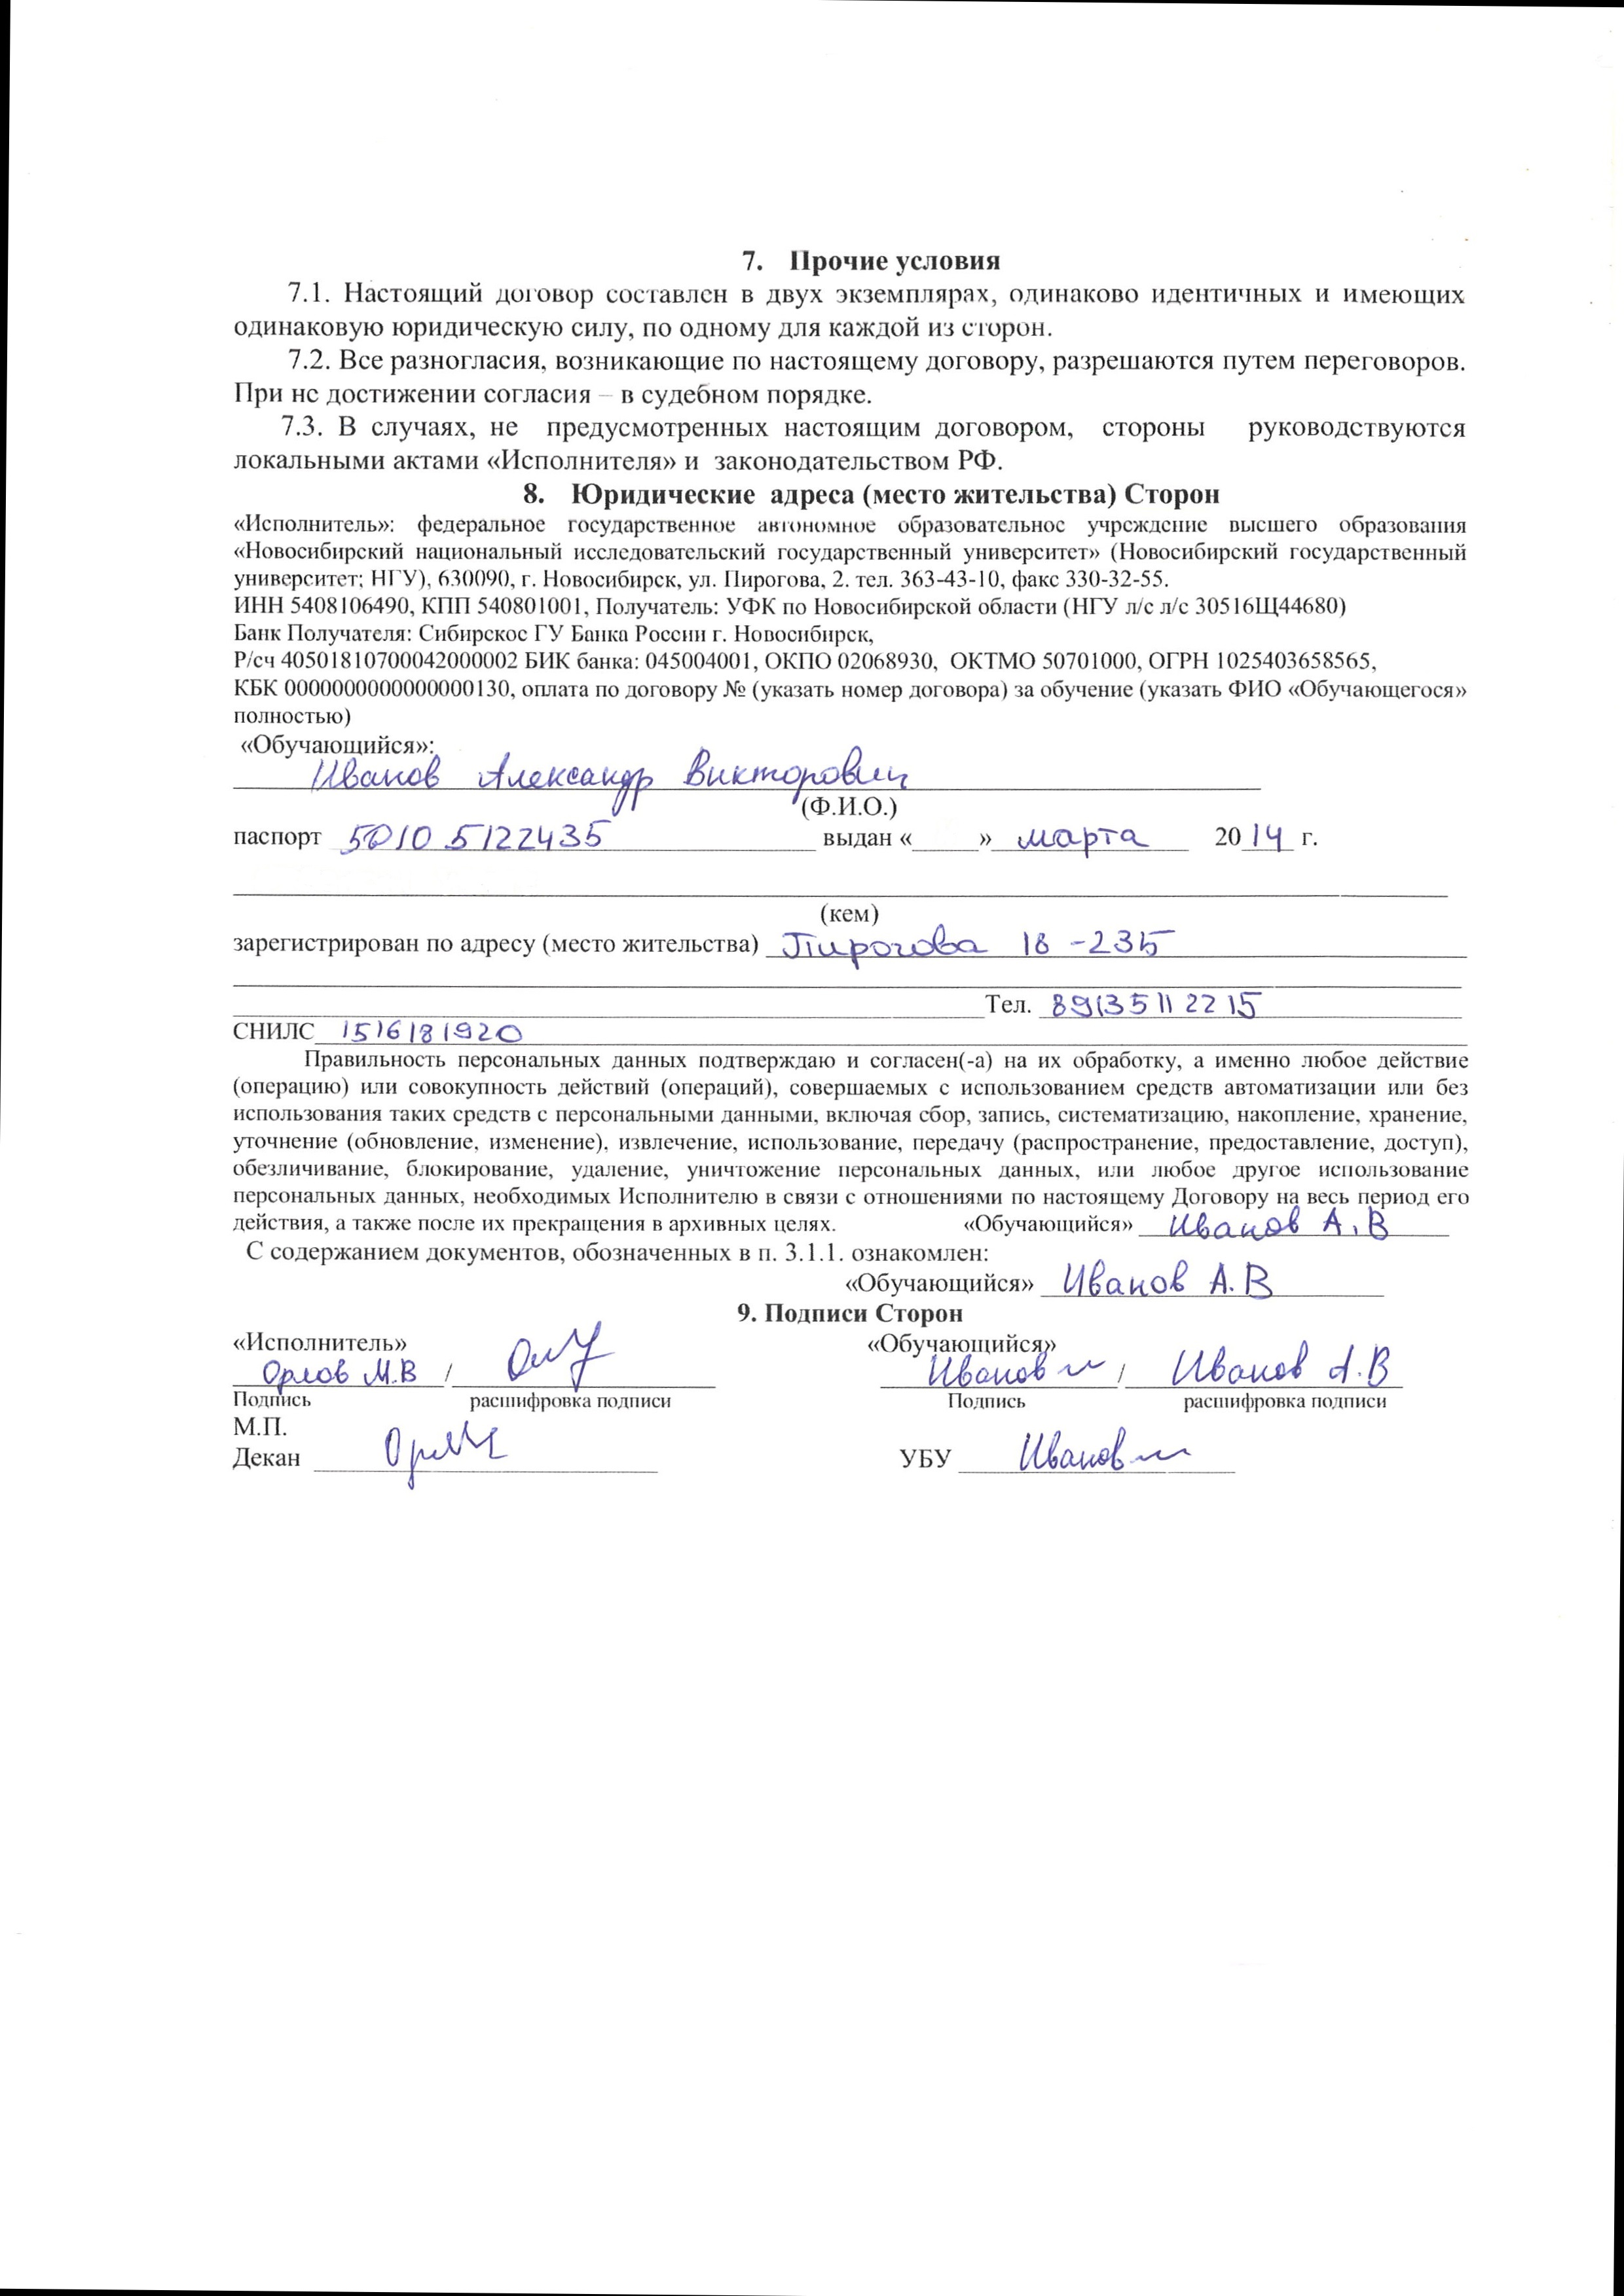 7. Прочие условия
7.1. Настоящий договор составлен в двух экземплярах, одинаково идентичных и имеющих
одинаковую юридическую силу, по одному для каждой из сторон.
7.2. Все разногласия, возникающие по настоящему договору, разрешаются путем переговоров.
При не достижении согласия – в судебном порядке.
7.3. В случаях, не предусмотренных настоящим договором, стороны руководствуются
локальными актами «Исполнителя» и законодательством РФ.
8. Юридические адреса (место жительства) Сторон
«Исполнитель»: федеральное государственное автономное образовательное учреждение высшего образования
«Новосибирский национальный исследовательский государственный университет» (Новосибирский государственный
университет; НГУ), 630090, г. Новосибирск, ул. Пирогова, 2. тел. 363-43-10, факс 330-32-55.
ИНН 5408106490, КПП 540801001, Получатель: УФК по Новосибирской области (НГУ л/с л/с 30516Щ44680)
Банк Получателя: Сибирское ГУ Банка России г. Новосибирск,
Р/сч 40501810700042000002 БИК банка: 045004001, ОКПО 02068930, ОКТМО 50701000, ОГРН 1025403658565,
КБК 00000000000000000130, оплата по договору № (указать номер договора) за обучение (указать ФИО «Обучающегося»
полностью)
«Обучающийся»:
Иванов Александр Викторович
(Ф.И.О.)
паспорт 5010 5122435 выдан « » марта 2014 г.
(кем)
зарегистрирован по адресу (место жительства) Пирогова 18 -235
Тел. 89135112215
СНИЛС 1516181920
Правильность персональных данных подтверждаю и согласен(-а) на их обработку, а именно любое действие
(операцию) или совокупность действий (операций), совершаемых с использованием средств автоматизации или без
использования таких средств с персональными данными, включая сбор, запись, систематизацию, накопление, хранение,
уточнение (обновление, изменение), извлечение, использование, передачу (распространение, предоставление, доступ),
обезличивание, блокирование, удаление, уничтожение персональных данных, или любое другое использование
персональных данных, необходимых Исполнителю в связи с отношениями по настоящему Договору на весь период его
действия, а также после их прекращения в архивных целях. «Обучающийся» Иванов А.В
С содержанием документов, обозначенных в п. 3.1.1. ознакомлен:
«Обучающийся» Иванов А.В
9. Подписи Сторон
«Исполнитель» «Обучающийся»
Орлов М.В / Иванов / Иванов А.В
Подпись расшифровка подписи Подпись расшифровка подписи
М.П.
Декан УБУ Иванов